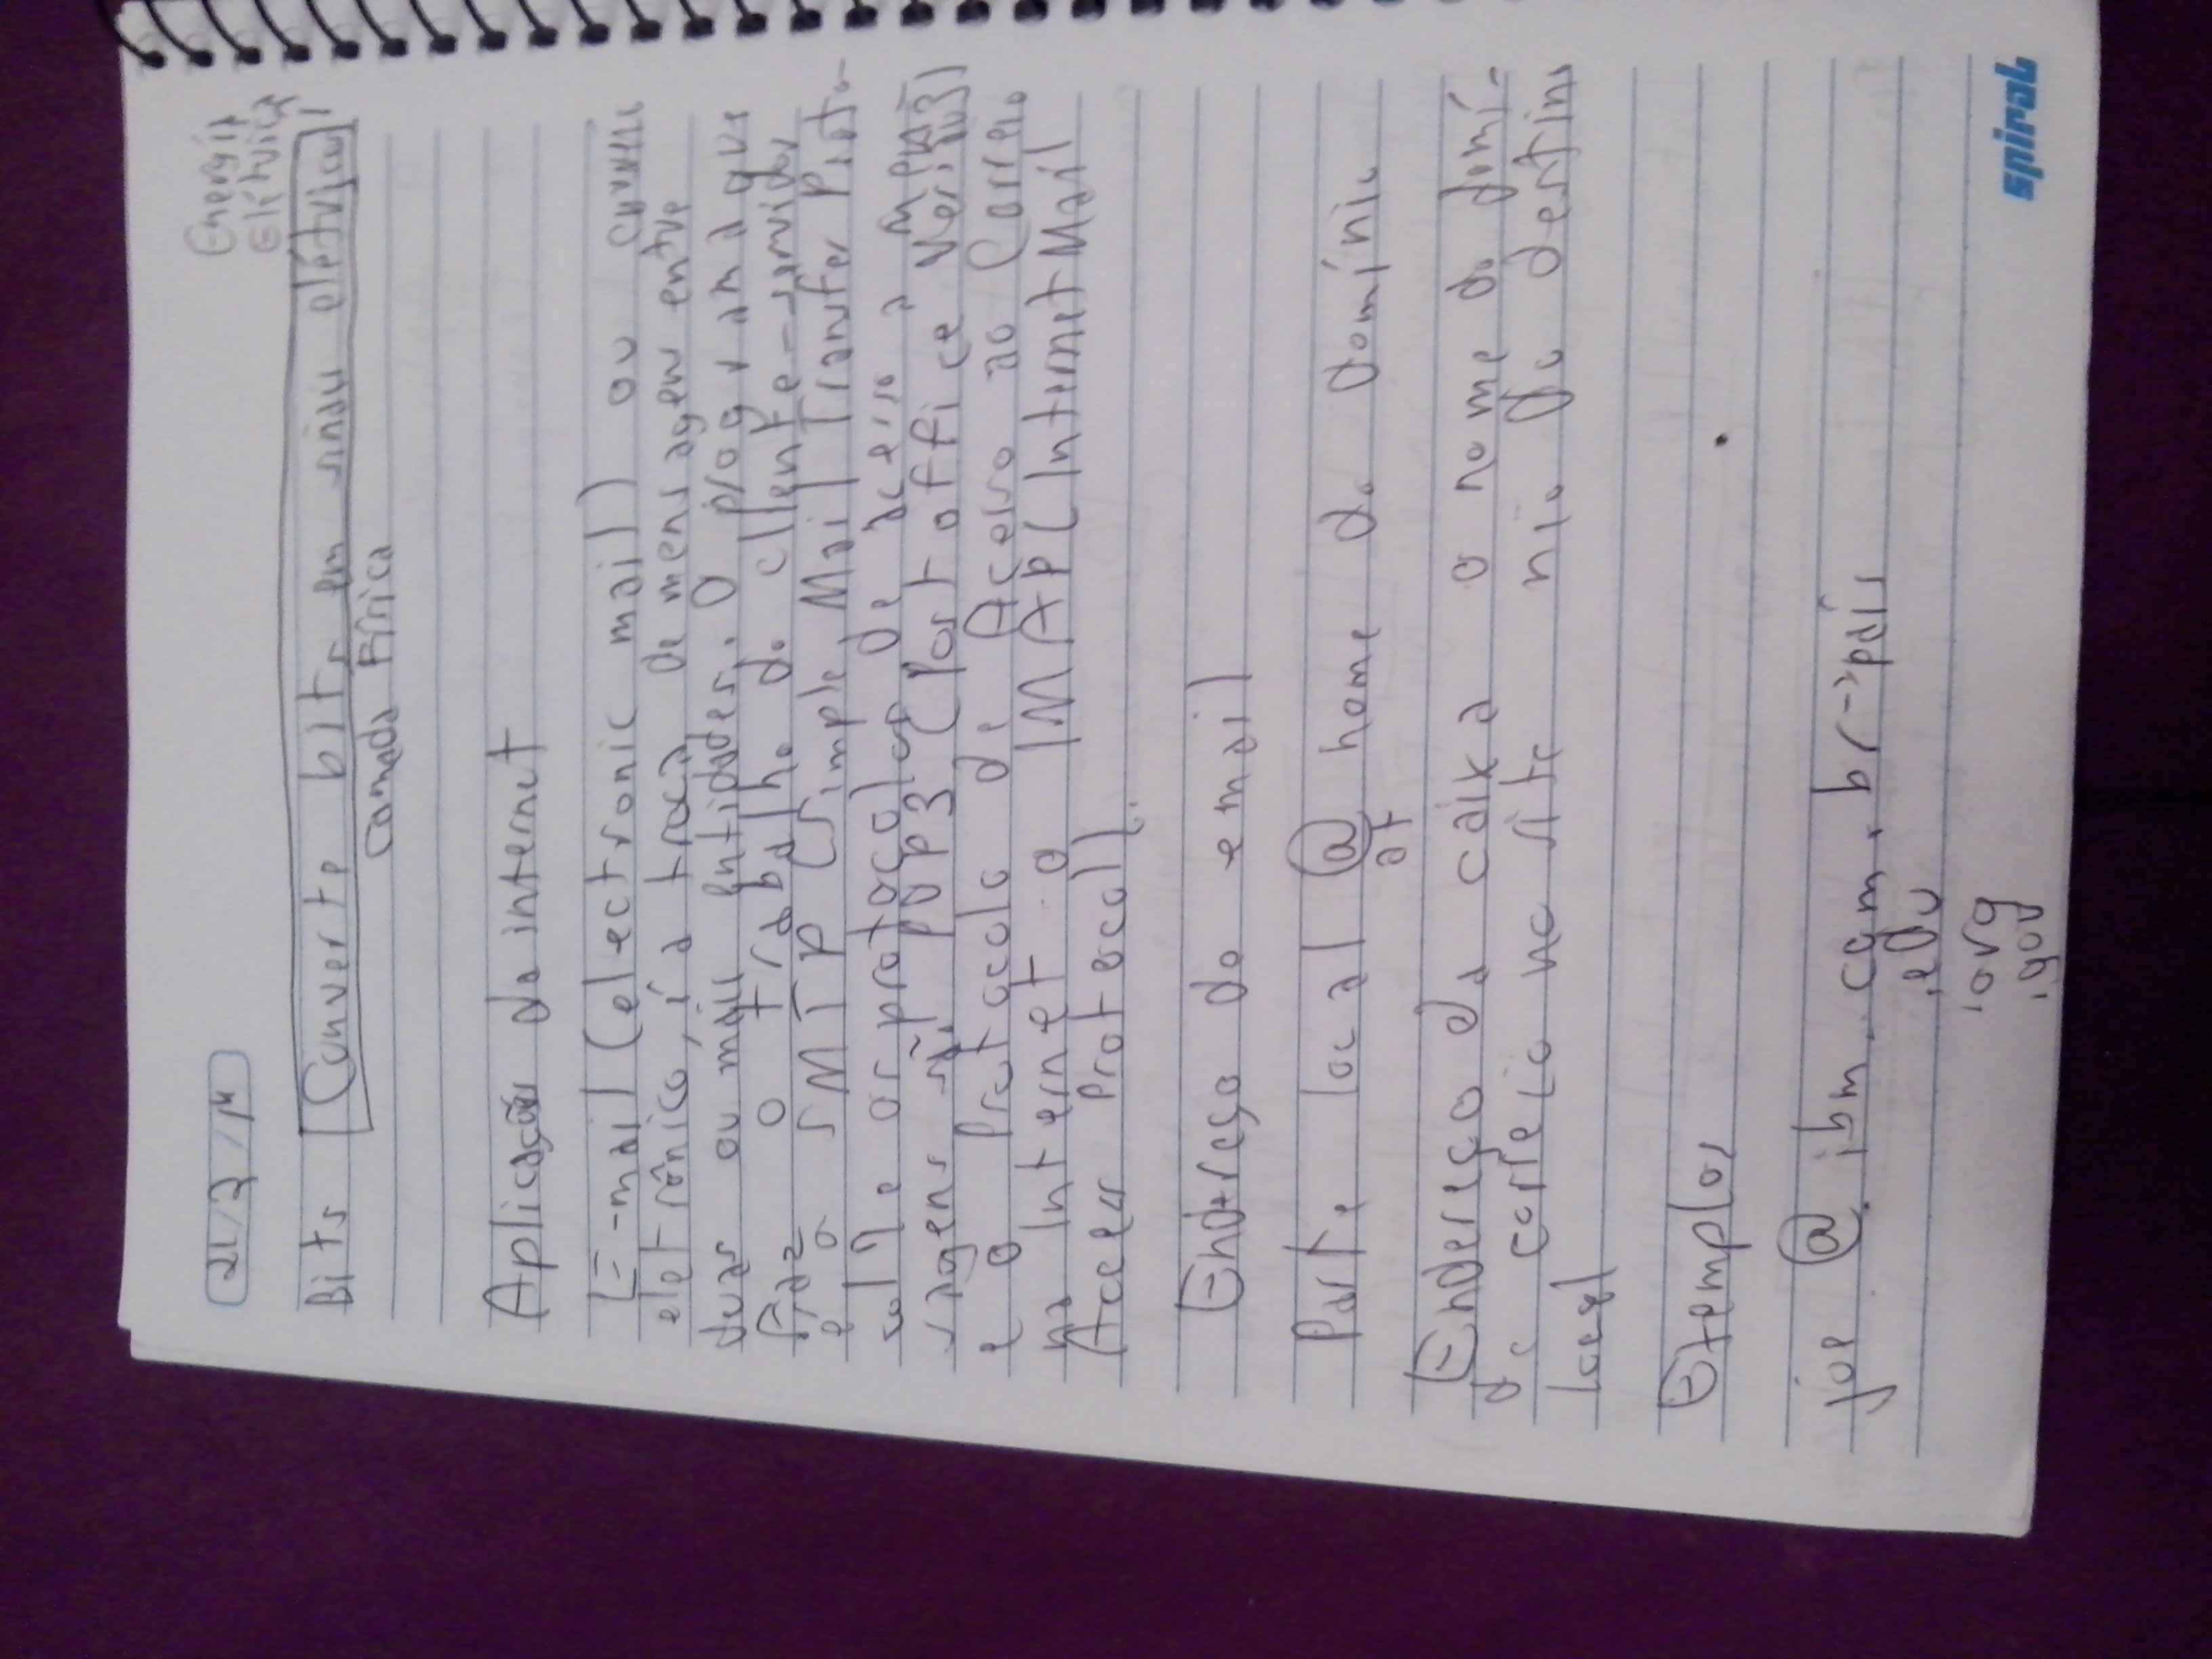 21/2/14
Energia
Elétrica
Bits Converte bits em sinais elétricos
Camada Física
Aplicações da internet
E-mail (electronic mail) ou correio
eletrônico, é a troca de mensagens entre
duas ou mais entidades. O programa que
faz o trabalho do cliente-servidor
é o SMTP (Simple Mail Transfer Proto-
col) e os protocolos de acesso a men-
sagens são POP3 (Post office Version3)
e o Protocolo de Acesso ao Correio
na Internet o IMAP (Internet Mail
Access Protocol).
Endereço do email
Parte local @ nome do domínio
at
Endereço da caixa o nome do domí-
do correio no site nio do destino
local
Exemplos
joe @ ibm . com . br -> país
.edu
.org
.gov
spiral